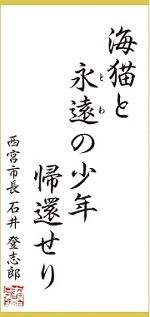 海猫と
永遠の少年
とわ
帰還せり
西宮市長 石井 登志郎